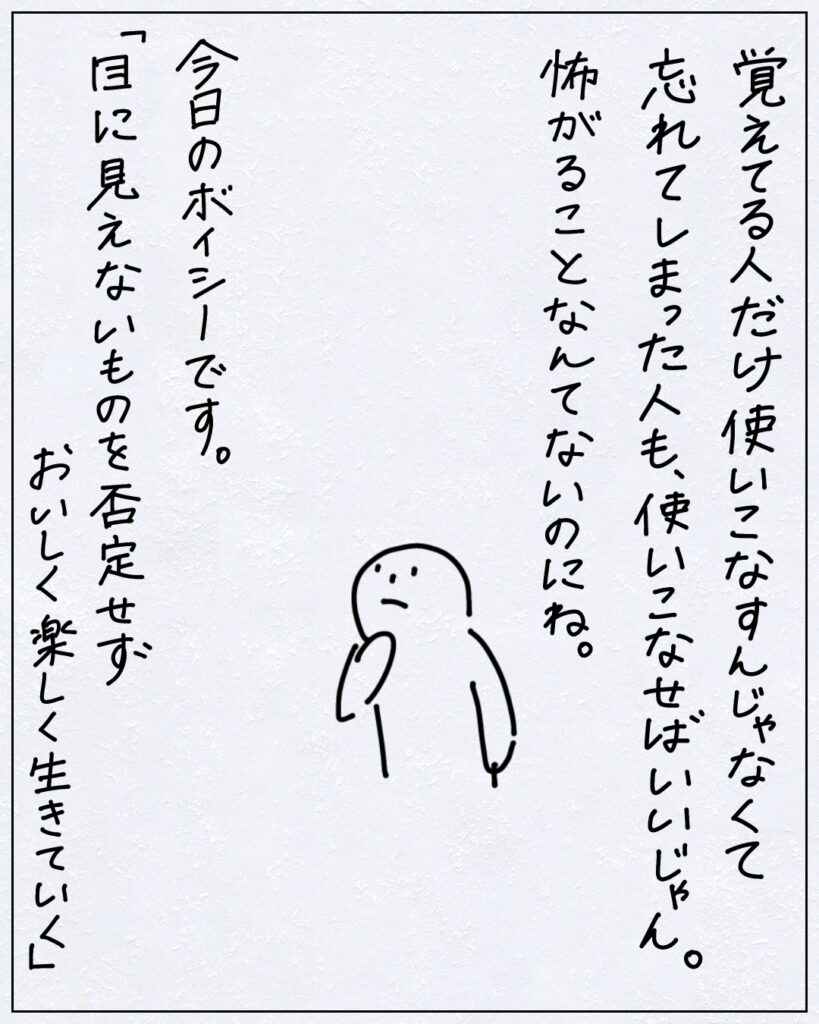 覚えてる人だけ使いこなすんじゃなくて
忘れてしまった人も、使いこなせばいいじゃん。
怖がることなんてないのにね。
今日のボイシーです。
「目に見えないものを否定せず
おいしく楽しく生きていく」